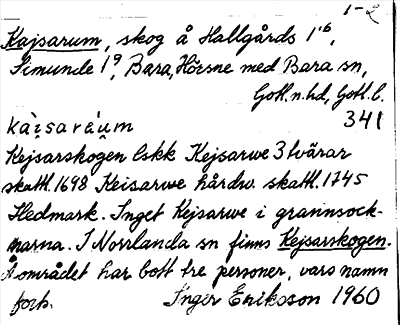 1-2
Kajsarum, skog å Hallgårds 1⁶,
Simunde 1⁹, Bara, Hörsne med Bara sn,
Gotl. n. hd, Gotl. l.
341
kàisaràum
Kejsarskogen lskk Kejsarwe 3 tvärar
skattl. 1698 Keisarwe hårdw. skattl. 1745
Hedmark. Inget Kejsarwe i grannsock-
narna. I Norrlanda sn finns Kejsarskogen.
Å området har bott tre personer, vars namn
forts. Inger Eriksson 1960